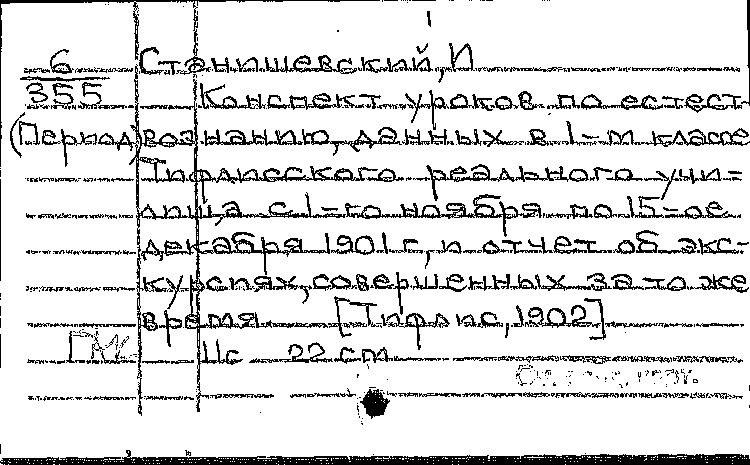 6 Станишевский, И
355 Конспект уроков по естест-
(Период) вознанию, данных в 1-м классе
Тифлисского реального учи-
лища с 1-го ноября по 15-ое
декабря 1901 г, и отчет об экс-
курсиях, совершенных за то же
время. [Тифлис, 1902]
11с 22 см